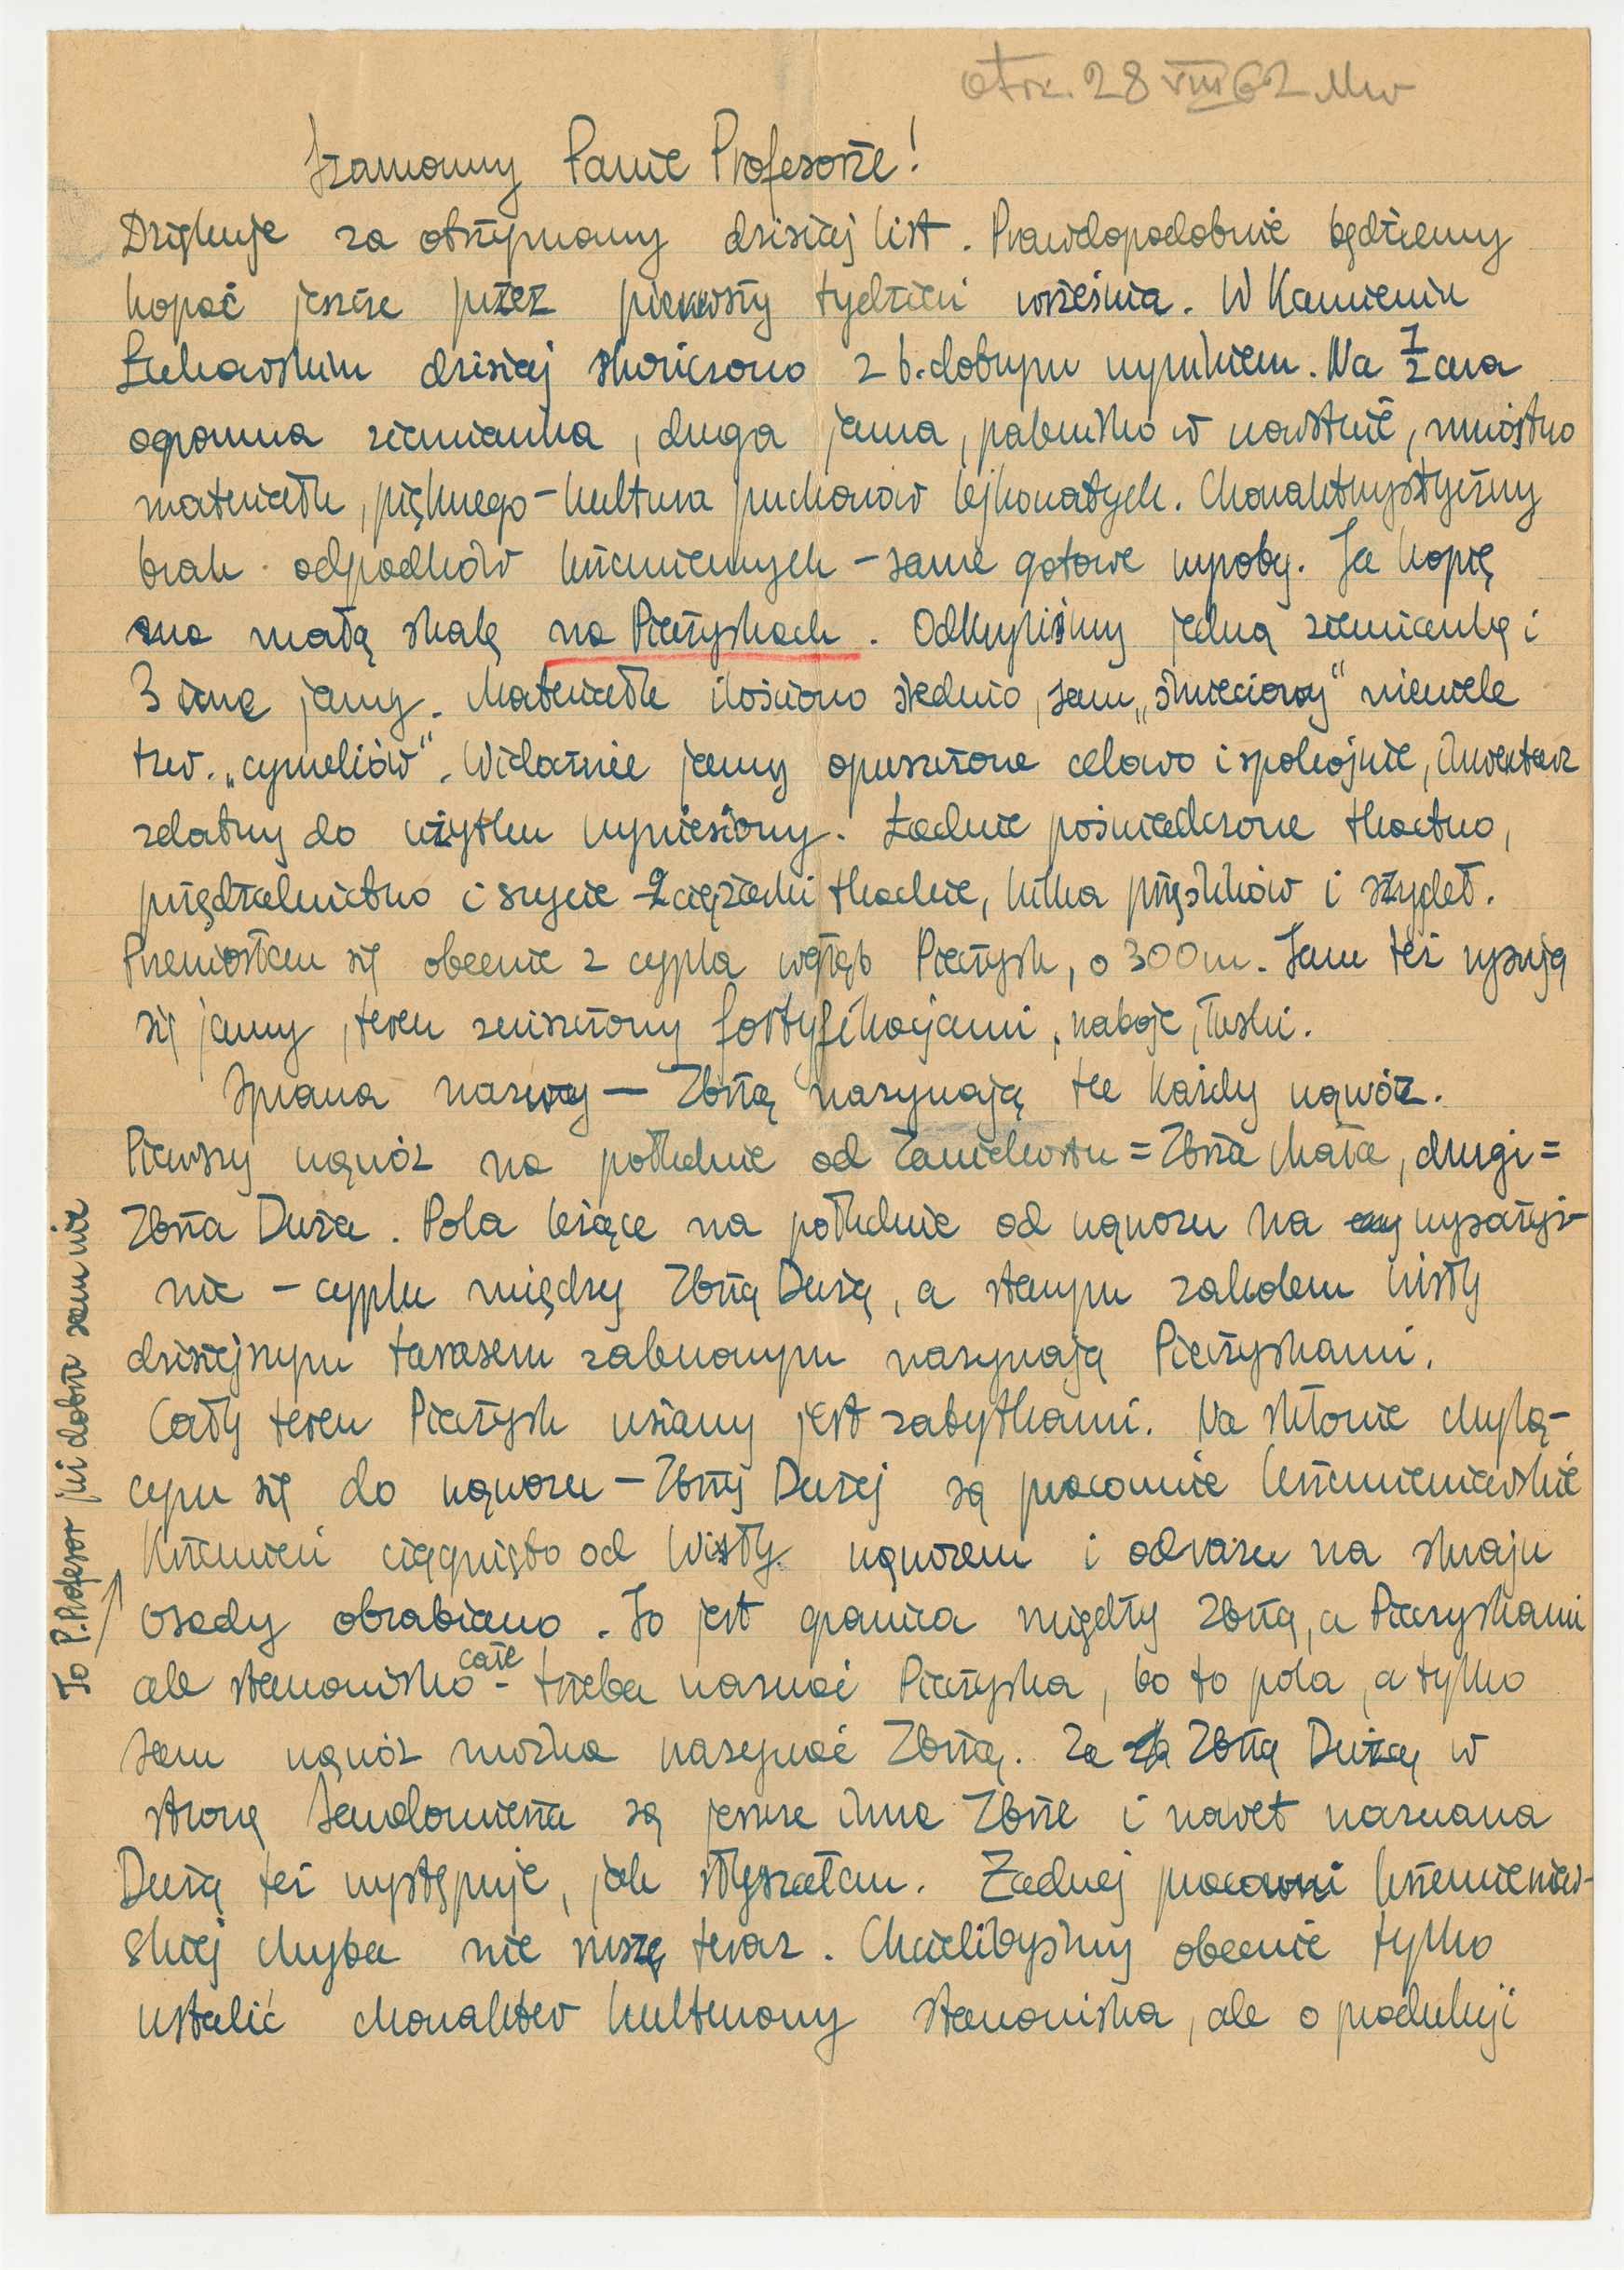 otrz. 28 VIII 62 Mw
Szanowny Panie Profesorze!
Dziękuję za otrzymany dzisiaj list. Prawdopodobnie będziemy
kopać jeszcze przez pierwszy tydzień września. W Kamieniu
Łukawskim dzisiaj skończono z b. dobrym wynikiem. Na 1/2 ara
ogromna ziemianka, druga jama, palenisko w warstwie, mnóstwo
materiału, pięknego – kultura pucharów lejkowatych. Charakterystyczny
brak odpadków krzemiennych – same gotowe wyroby. Ja kopię
na małą skalę na Pieczyskach. Odkryliśmy jedną ziemiankę i
3 inne jamy. Materiału ilościowo średnio, sam „śmieciowy" niewiele
tzw. „cymeliów". Widocznie jamy opuszczone celowo i spokojnie, inwentarz
zdatny do użytku wyniesiony. Ładnie poświadczone tkactwo,
przędzalnictwo i szycie – 2 ciężarki tkackie, kilka przęślików i szydeł.
Przeniosłam się obecnie z cypla wgłąb Pieczysk, o 300 m. Tam też rysują
się jamy, teren zniszczony fortyfikacjami, naboje, łuski.
Sprawa nazwy – Zbrzą nazywają tu każdy wąwóz.
Pierwszy wąwóz na południe od Zawichostu = Zbrza Mała, drugi =
Zbrza Duża. Pola leżące na południe od wąwozu na wysoczyź-
nie – cyplu między Zbrzą Dużą, a starym zakolem Wisły
dzisiejszym tarasem zalewowym nazywają Pieczyskami.
Cały teren Pieczysk usiany jest zabytkami. Na skłonie chylą-
cym się do wąwozu – Zbrzy Dużej są pracownie krzemieniarskie
Krzemień ciągnięto od Wisły wąwozem i od razu na skraju
osady obrabiano. To jest granica między Zbrzą, a Pieczyskami
ale stanowisko całe – trzeba nazwać Pieczyska, bo to pola, a tylko
sam wąwóz można nazywać Zbrzą. Za Zbrzą Dużą w
stronę Sandomierza są jeszcze inne Zbrze i nawet nazwana
Dużą też występuje, jak słyszałam. Żadnej pracowni krzemieniar-
skiej chyba nie ruszę teraz. Chcielibyśmy obecnie tylko
ustalić charakter kulturowy stanowiska, ale o produkcji
To P. Profesor już dobrze sam wie